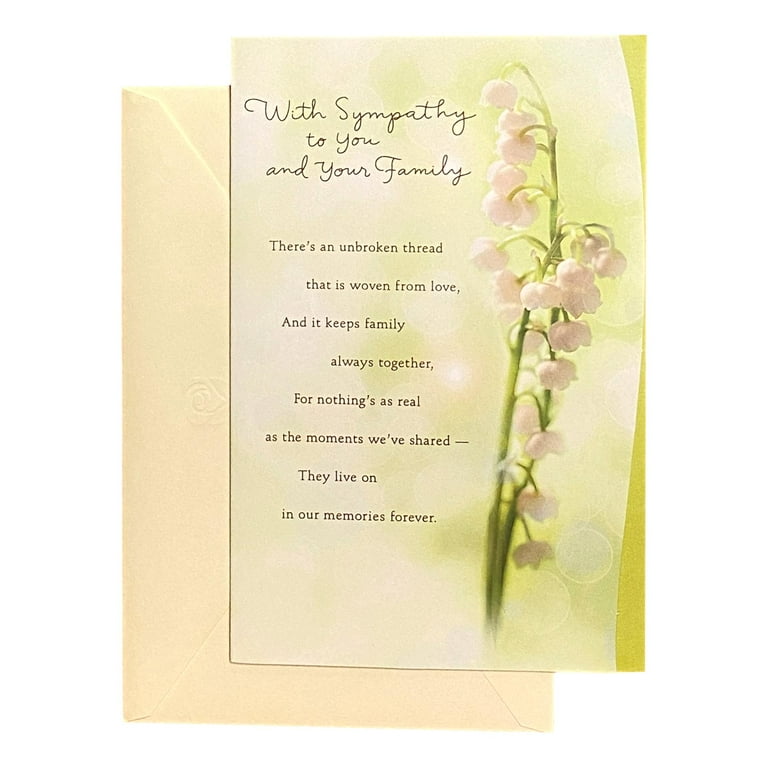 With Sympathy
to You
and Your Family
There's an unbroken thread
that is woven from love,
And it keeps family
always together,
For nothing's as real
as the moments we've shared —
They live on
in our memories forever.